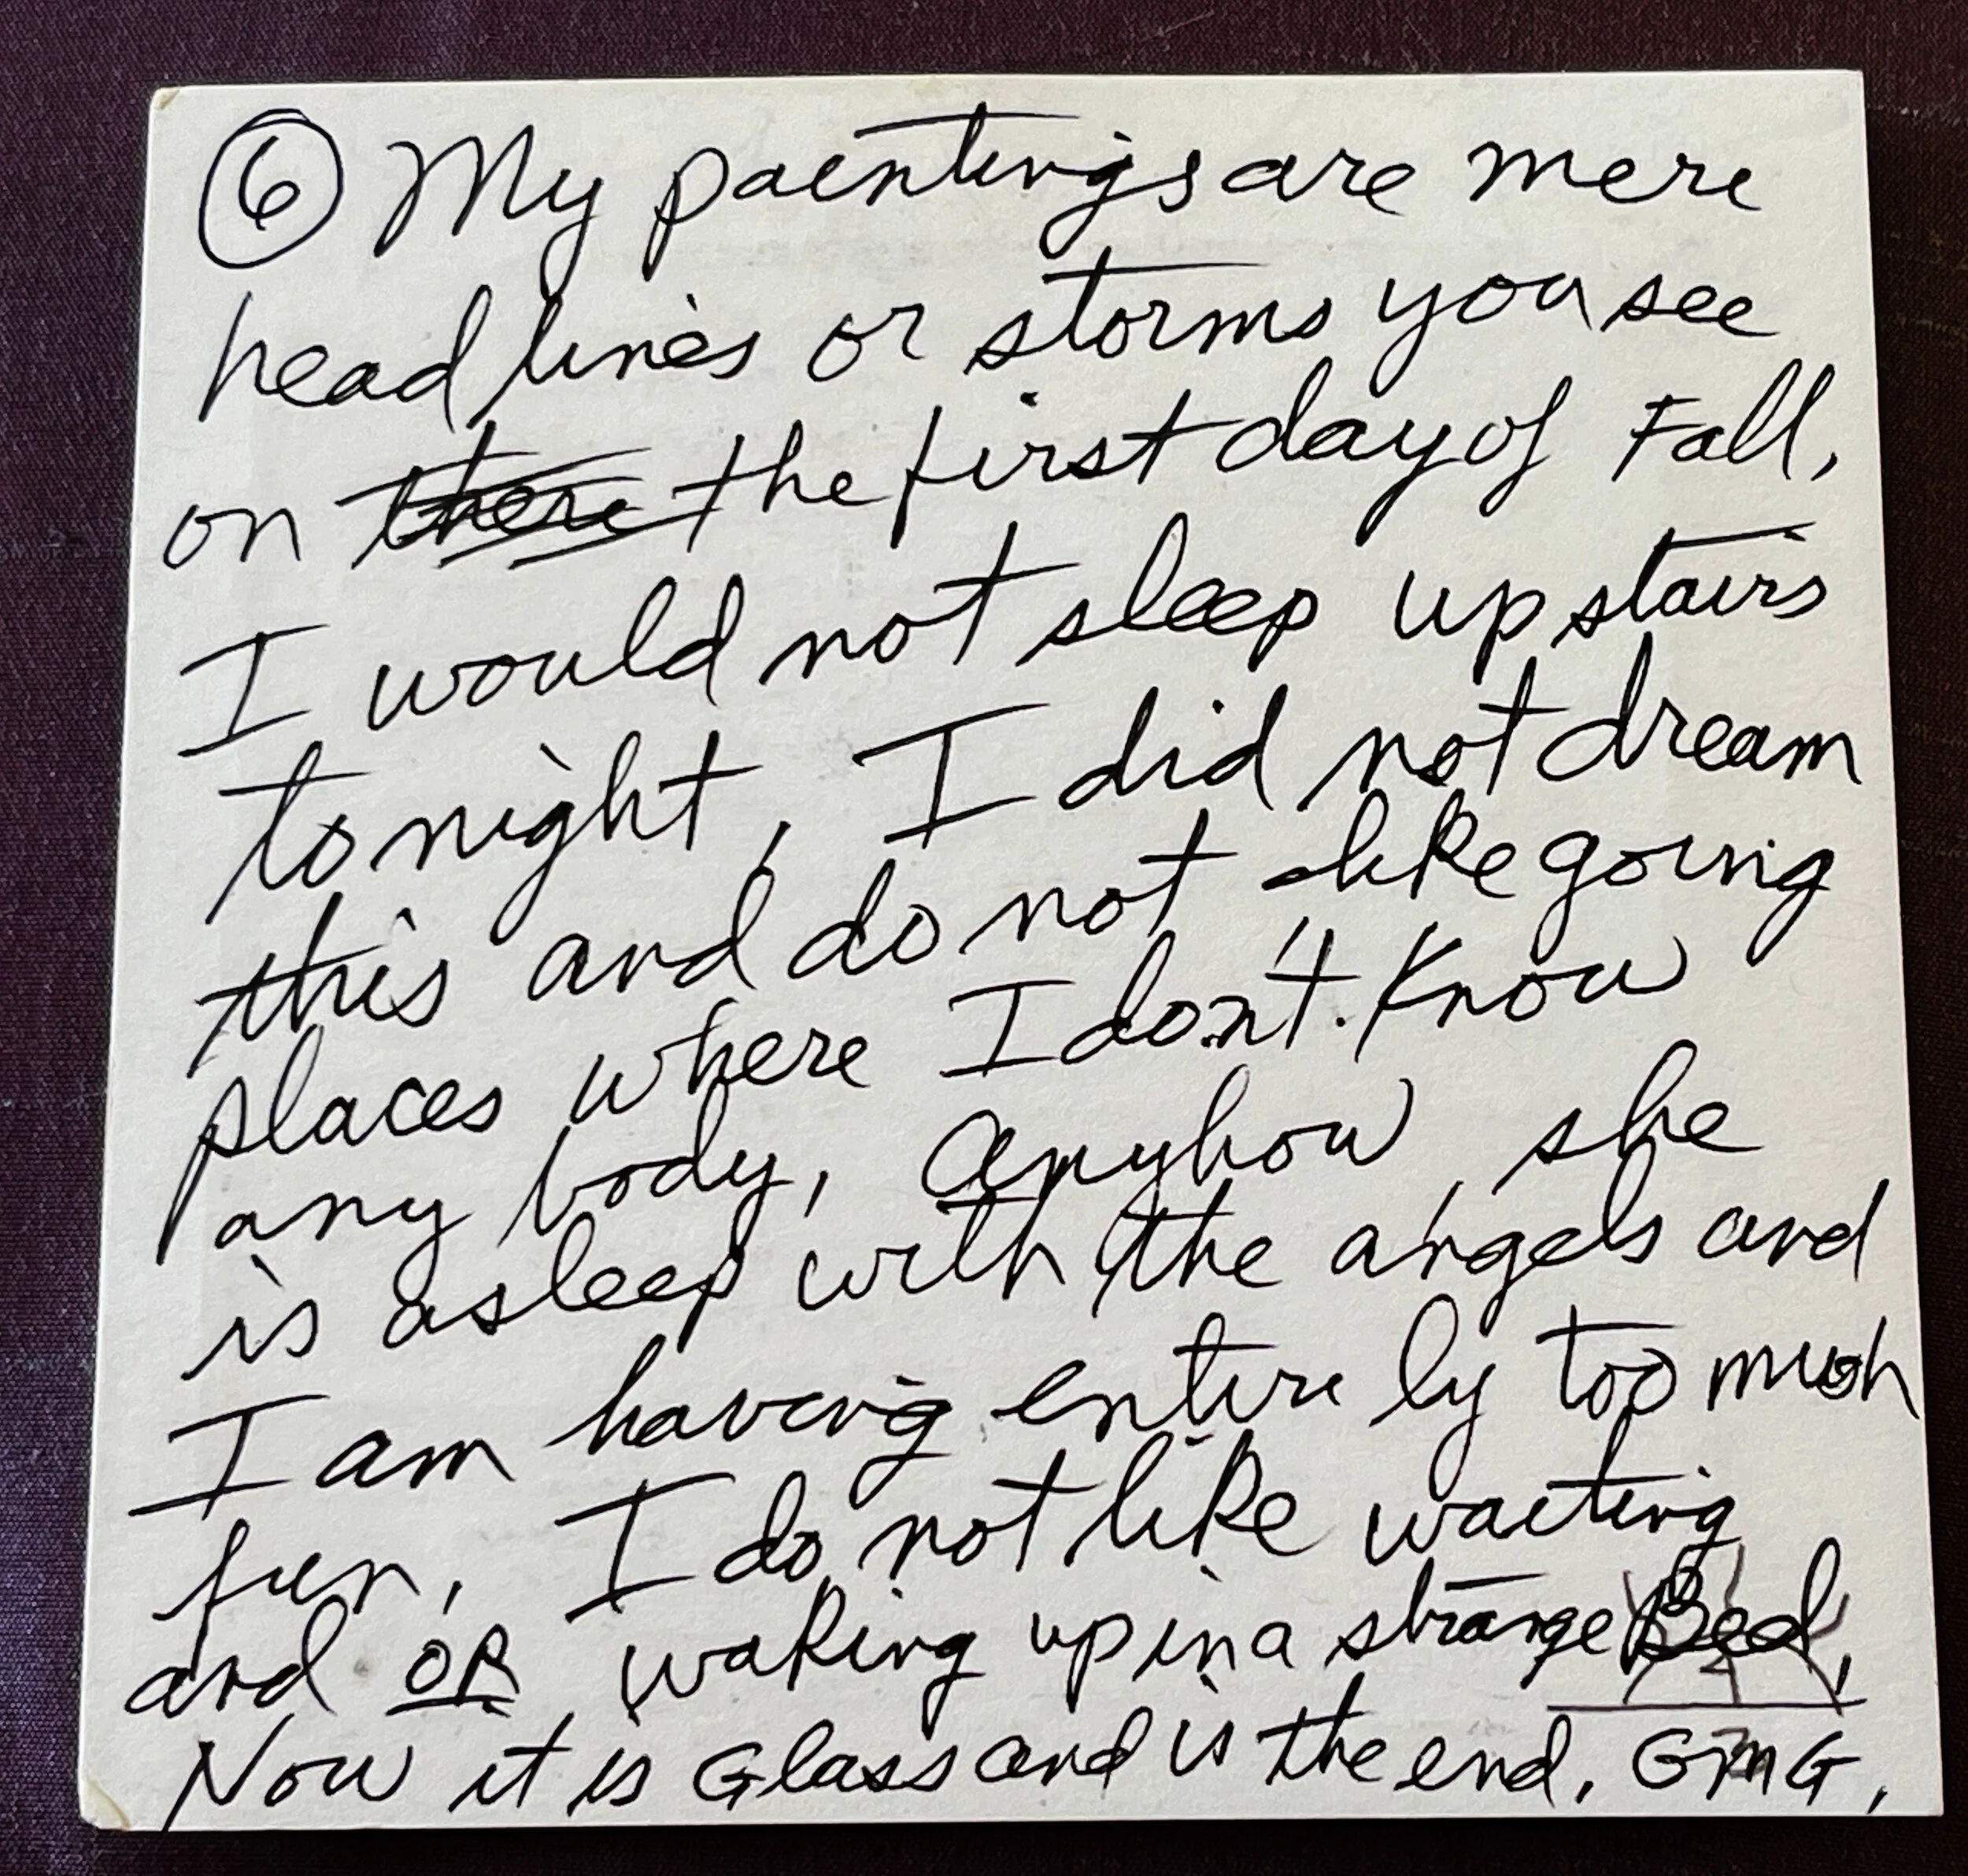 ⑥ My paintings are mere
head lines or storms you see
on there the first day of Fall,
I would not sleep up stairs
to night, I did not dream
this and do not like going
places where I don't. Know
any body, Anyhow she
is asleep with the angels and
I am having entire ly too much
fun, I do not like waiting
and OR waking up in a strange Bed,
Now it is Glass and is the end, GMG,